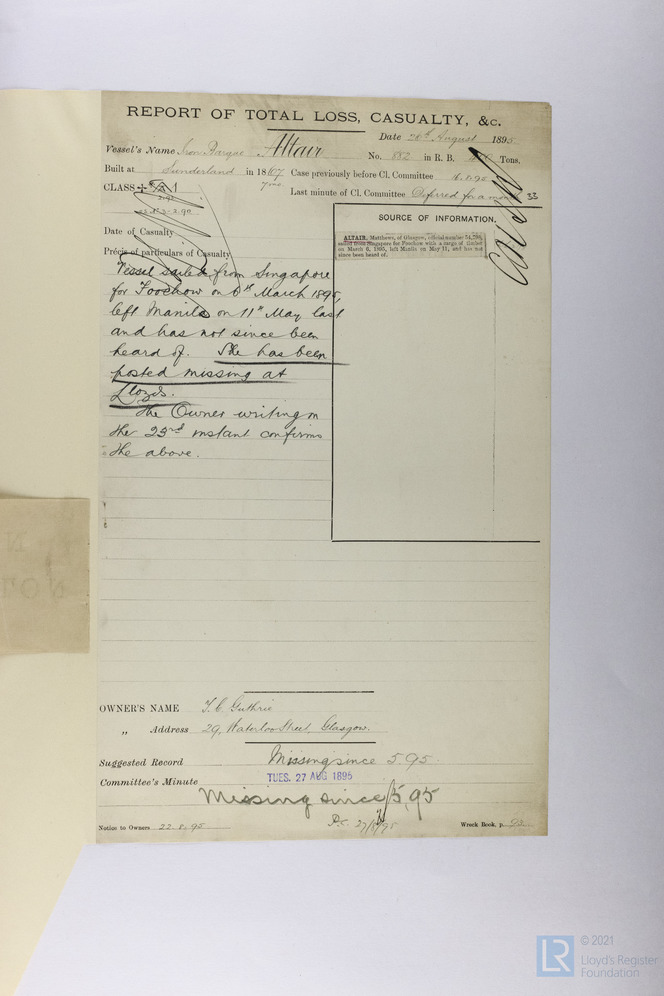 REPORT OF TOTAL LOSS, CASUALTY, &c.
Date 26th August 1895
Vessel's Name Iron Barque Altair No. 552 in R. B. Tons,
Built at Sunderland in 1867 Case previously before Cl. Committee 16.8.95
7mo. Last minute of Cl. Committee Deferred for a month 33
CLASS
SOURCE OF INFORMATION.
ALTAIR, Matthews, of Glasgow, official number
sailed from Singapore for Foochow with a cargo of timber
on March 6, 1895, left Manila on May 11, and has not
since been heard of.
Date of Casualty
Précis of particulars of Casualty
Vessel sailed from Singapore
for Foochow on 6th March 1895,
left Manila on 11th May last
and has not since been
heard of. She has been
posted missing at
Lloyds.
The Owner writing on
the 23rd instant confirms
the above.
OWNER'S NAME T. C. Guthrie
„ Address 29, Waterloo Street, Glasgow.
Suggested Record Missing since 5.95.
Committee's Minute TUES. 27 AUG 1895
Missing since 5,95
Notice to Owners 22.8.95 27/8/95 Wreck Book, p. 92
LR © 2021
Lloyd's Register
Foundation